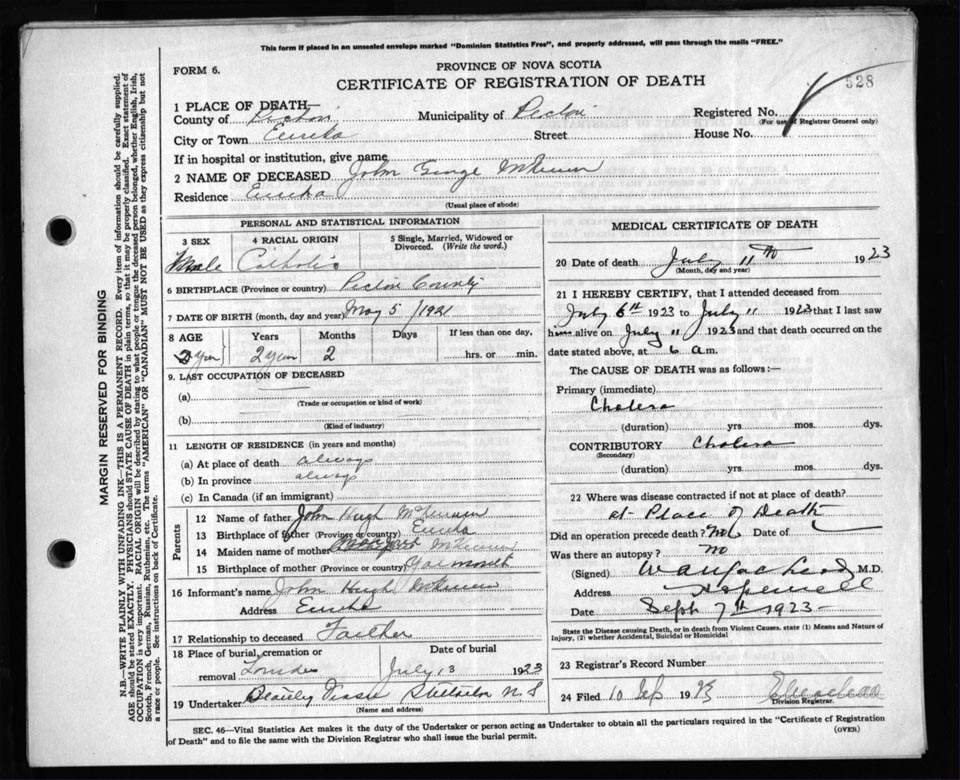 This form if placed in an unsealed envelope marked "Dominion Statistics Free", and properly addressed, will pass through the mails "FREE."
PROVINCE OF NOVA SCOTIA
FORM 6.
CERTIFICATE OF REGISTRATION OF DEATH
528
1 PLACE OF DEATH—
County of Pictou Municipality of Pictou Registered No.
(For use of Registrar General only)
City or Town Eureka Street House No.
If in hospital or institution, give name
2 NAME OF DECEASED John George
Residence Eureka
(Usual place of abode)
PERSONAL AND STATISTICAL INFORMATION
3 SEX
Male
4 RACIAL ORIGIN
Catholic
5 Single, Married, Widowed or
Divorced. (Write the word.)
6 BIRTHPLACE (Province or country) Pictou County
7 DATE OF BIRTH (month, day and year) May 5 / 1921
8 AGE Years Months Days If less than one day,
2 year 2 year 2 hrs. or min.
9. LAST OCCUPATION OF DECEASED
(a)
(Trade or occupation or kind of work)
(b)
(Kind of industry)
11 LENGTH OF RESIDENCE (in years and months)
(a) At place of death always
(b) In province always
(c) In Canada (if an immigrant)
Parents
12 Name of father John Hugh
13 Birthplace of father (Province or country) Eureka
14 Maiden name of mother Margaret
15 Birthplace of mother (Province or country)
16 Informant's name John Hugh
Address Eureka
17 Relationship to deceased Faither
18 Place of burial, cremation or removal Date of burial
July 13 1923
19 Undertaker N S
(Name and address)
MEDICAL CERTIFICATE OF DEATH
20 Date of death July 11th 1923
(Month, day and year)
21 I HEREBY CERTIFY, that I attended deceased from
July 6th 1923 to July 11 1923 that I last saw
him alive on July 11 1923 and that death occurred on
date stated above, at 6 a.m.
The CAUSE OF DEATH was as follows:—
Primary (immediate)
Cholera
(duration) yrs mos. dys.
CONTRIBUTORY Cholera
(Secondary)
(duration) yrs. mos. dys.
22 Where was disease contracted if not at place of death?
at Place of Death
Did an operation precede death? No Date of
Was there an autopsy? No
(Signed) M.D.
Address Hopewell
Date Sept 7th 1923
State the Disease causing Death, or in death from Violent Causes, state (1) Means and Nature of
Injury, (2) whether Accidental, Suicidal or Homicidal
23 Registrar's Record Number
24 Filed 10 Sep 19
Division Registrar.
SEC. 46—Vital Statistics Act makes it the duty of the Undertaker or person acting as Undertaker to obtain all the particulars required in the "Certificate of Registration
of Death" and to file the same with the Division Registrar who shall issue the burial permit.
(OVER)
MARGIN RESERVED FOR BINDING
N.B.—WRITE PLAINLY WITH UNFADING INK—THIS IS A PERMANENT RECORD. Every item of information should be carefully supplied.
AGE should be stated EXACTLY. PHYSICIANS should STATE CAUSE OF DEATH in plain terms, so that it may be properly classified. Exact statement of
OCCUPATION is very important. RACIAL ORIGIN will be described by stating to what people or tongue the deceased person belonged, whether English, Irish,
Scotch, French, German, Russian, Ruthenian, etc. The terms "AMERICAN" OR "CANADIAN" MUST NOT BE USED as they express citizenship but not
a race or people. See instructions on back of Certificate.